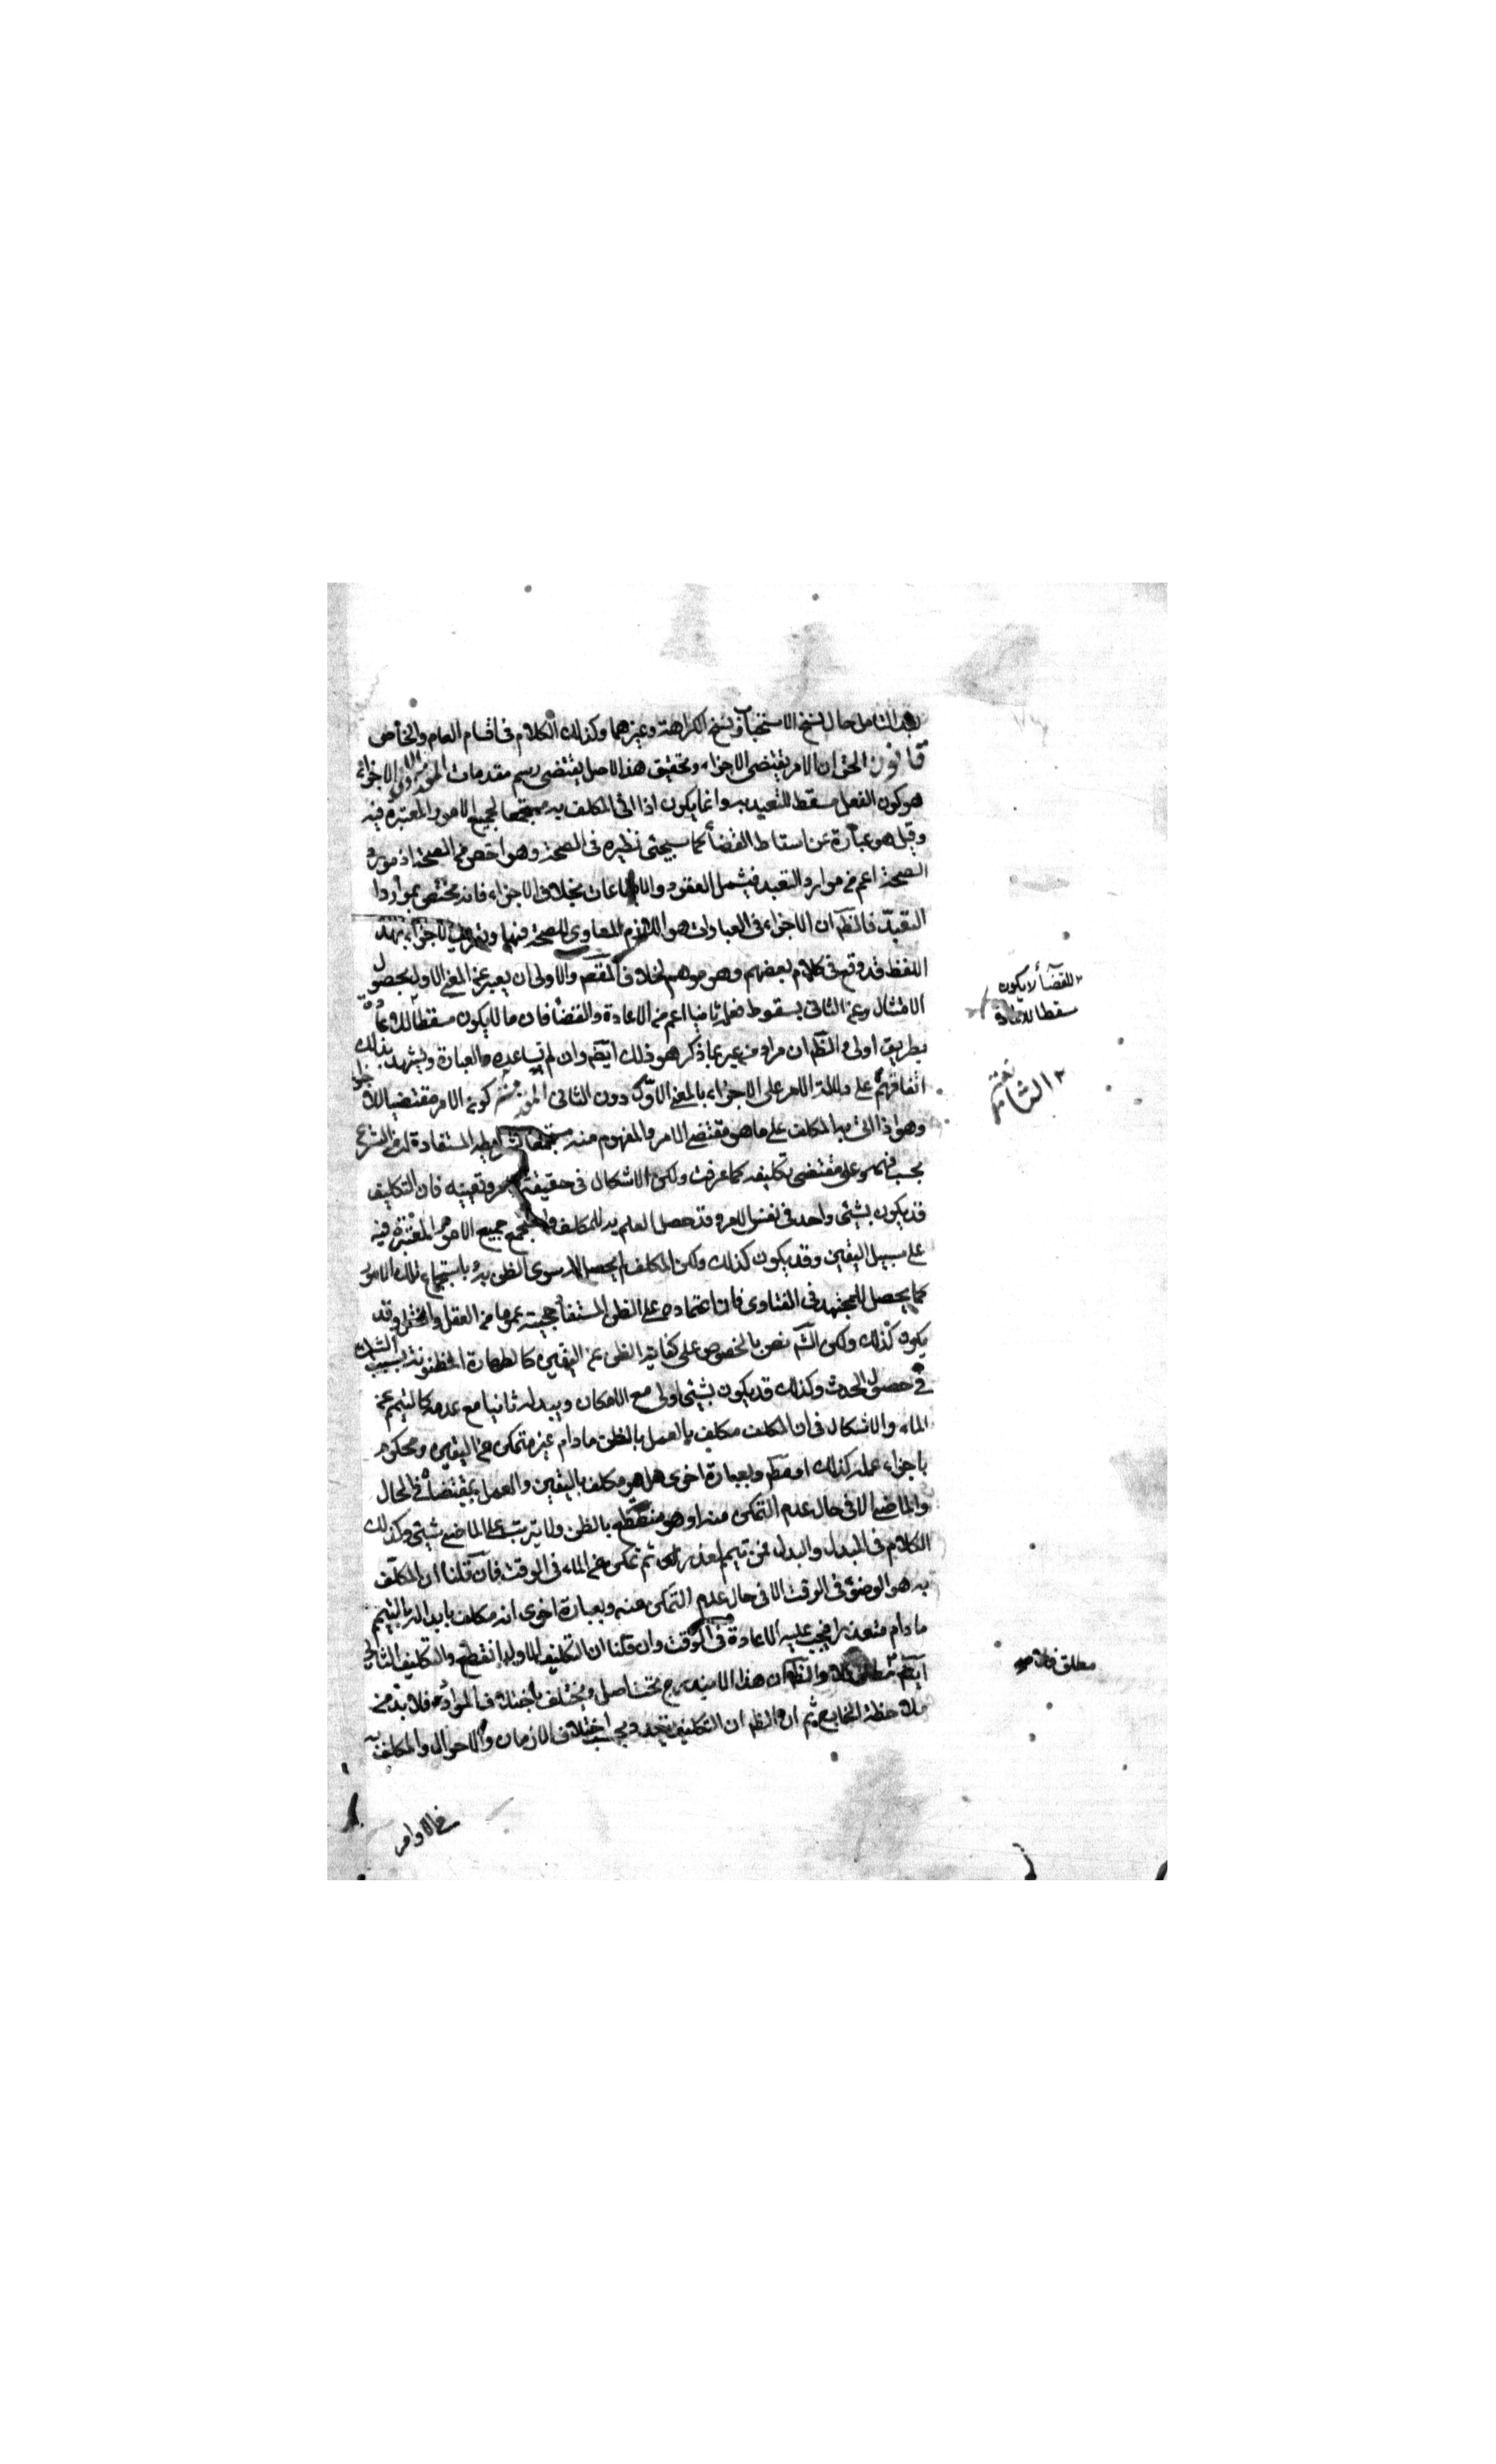 بعد التامل حال نسخ الاستحباب و نسخ الكراهة وغيرهما وكذلك الكلام فى اقسام العام والخاص
قانون الحق ان الامر يقتضى الاجزاء وتحقيق هذا الاصل يقتضى رسم مقدمات الاولى الاجزاء
هو كون الفعل مسقطا للتعبد به وانما يكون اذا اتى المكلف به مستجمعا لجميع الامور المعتبرة فيه
وقيل هو عبارة عن اسقاط القضاء كما سيجئى نظيره فى الصحة وهو اخص من الصحة اذ مورد
الصحة اعم من موارد التعبد فيشمل العقود والايقاعات بخلاف الاجزاء فانه مختص بموارد
التعبد فالظم ان الاجزاء فى العبادات هو اللازم المساوى للصحة فيها وتعريف الاجزاء بهذا
اللفظ قد وقع فى كلام بعضهم وهو موهم لخلاف المقصم والاولى ان يعبر عن المعنى الاول بحصول
الامتثال وعن الثانى بسقوط فعله ثانيا اعم من الاعادة والقضاء فان ما لا يكون مسقطا للاعادة
بطريق اولى والظم ان مراد من عبر بما ذكر هو ذلك ايضم وان لم تساعده العبارة ويشهد بذلك
اتفاقهم على دلالة الامر على الاجزاء بالمعنى الاول دون الثانى كون الامر مقتضيا للاجزاء
وهو اذا اتى به المكلف على ما هو مقتضى الامر والمفهوم منه مستجمعا لشرايطه المستفادة له من الشرع
بحسب فهمه وعلى مقتضى تكليفه كما عرفت ولكن الاشكال فى حقيقة الامر وتعيينه فان التكليف
قد يكون بشيئى واحد فى نفس الامر وقد حصل العلم به للمكلف واستجمع جميع الامور المعتبرة فيه
على سبيل اليقين وقد يكون كذلك ولكن المكلف لم يحصل له سوى الظن به وباستجماع تلك الامور
كما يحصل للمجتهد فى الفتاوى فان اعتماده على الظن المستفاد حجيته عموما من العقل والنقل وقد
يكون كذلك ولكن الشم نص بالخصوص على كفاية الظن عن اليقين كالطهارة المظنونة بسبب الشك
فى حصول الحدث وكذلك قد يكون بشيئى اولى مع الامكان وببدله ثانيا مع عدمه كالتيمم عن
الماء والاشكال فى ان المكلف مكلف بالعمل بالظن ما دام غير متمكن من اليقين ومحكوم
باجزاء عمله كذلك او مطم وبعبارة اخرى هل هو مكلف باليقين والعمل بمقتضاه فى الحال
والماضى الا فى حال عدم التمكن منه او هو منقطع بالظن ولا يترتب على الماضى شيئى وكذلك
الكلام فى المبدل والبدل فمن تيمم لعذر ثم تمكن من الماء فى الوقت فان قلنا ان المكلف
به هو الوضوء فى الوقت الا فى حال عدم التمكن منه وبعبارة اخرى انه مكلف بابداله بالتيمم
ما دام متعذرا فيجب عليه الاعادة فى الوقت وان قلنا ان التكليف الاول انقطع والتكليف الثانى
ايضم مطلق فلا والظم ان هذا لا يندرج تحت اصل ويختلف باختلاف الموارد فلا بد من
ملاحظة الخارج ثم ان الظم ان التكليف يتجدد بحسب اختلاف الازمان والاحوال والمكلف به
للقضاء لا يكون
مسقطا للاعادة
مطلق فلا
فى الاوامر